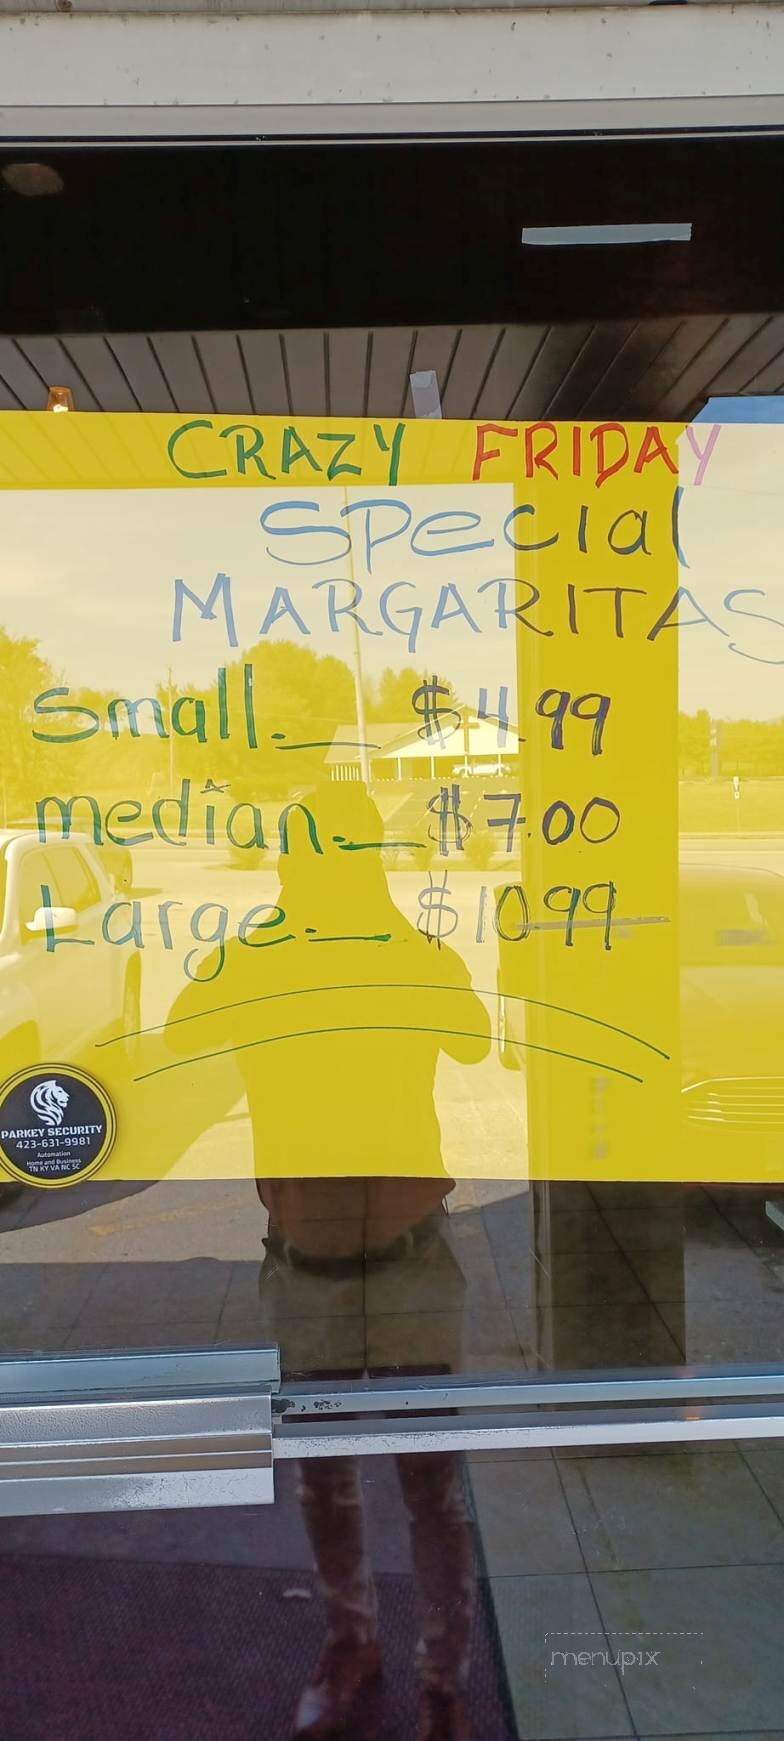 CRAZY FRIDAY
Special
MARGARITAS
Small.__ $4.99
median.__ $7.00
Large.__ $10.99
PARKEY SECURITY
423-631-9981
Automation
Home and Business
TN KY VA NC SC
menupix